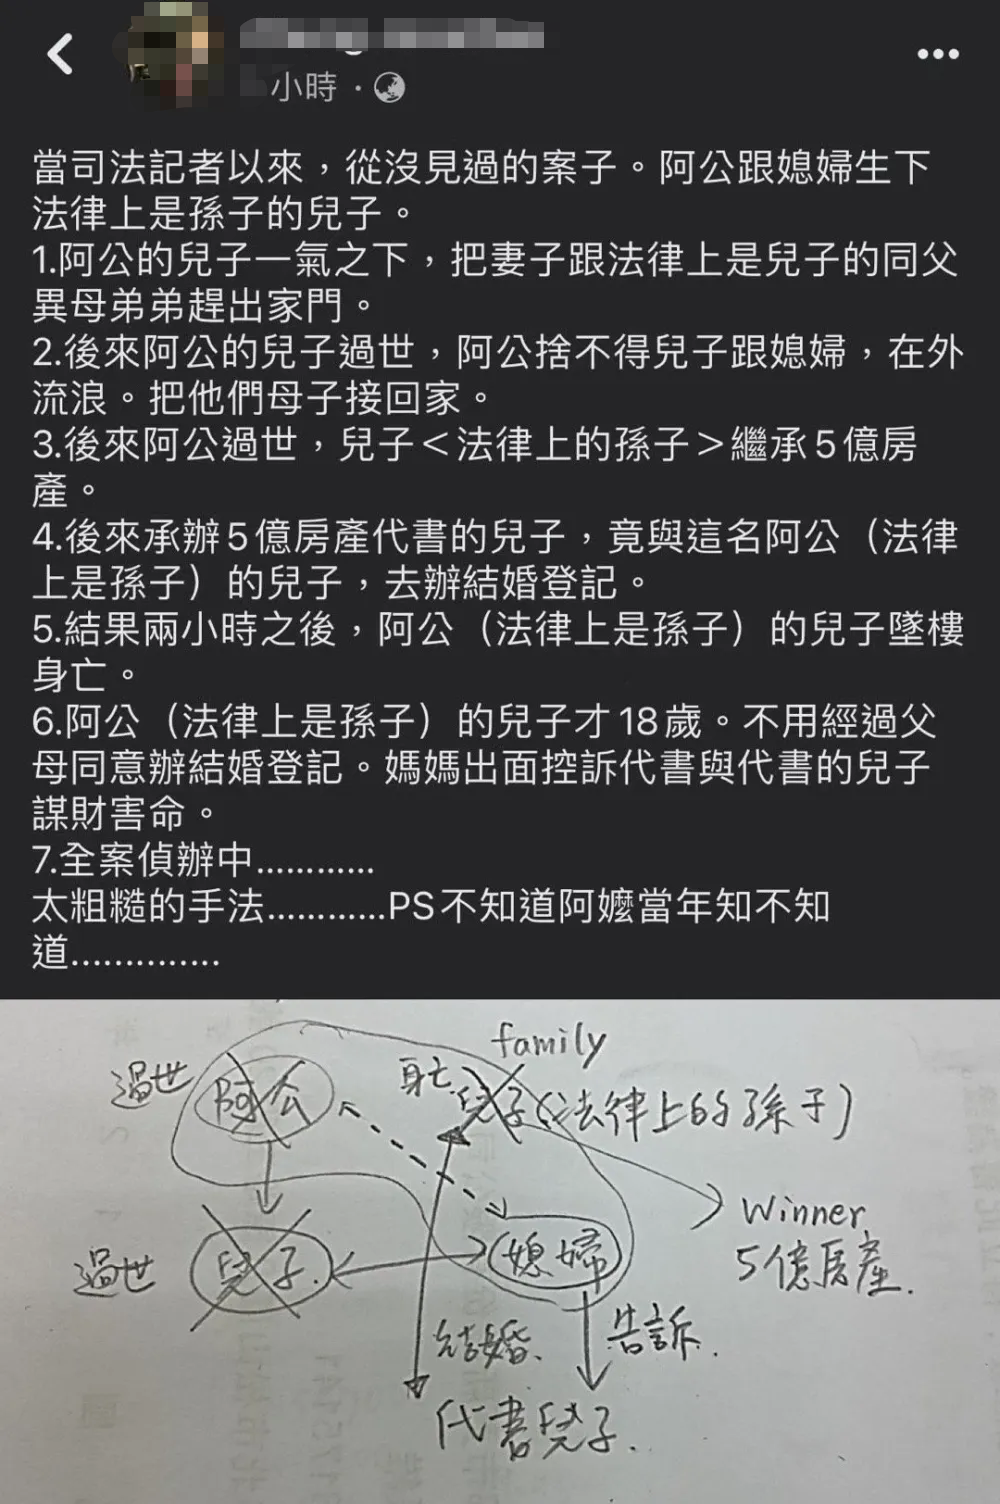 小時
當司法記者以來，從沒見過的案子。阿公跟媳婦生下
法律上是孫子的兒子。
1.阿公的兒子一氣之下，把妻子跟法律上是兒子的同父
異母弟弟趕出家門。
2.後來阿公的兒子過世，阿公捨不得兒子跟媳婦，在外
流浪。把他們母子接回家。
3.後來阿公過世，兒子＜法律上的孫子＞繼承5億房
產。
4.後來承辦5億房產代書的兒子，竟與這名阿公（法律
上是孫子）的兒子，去辦結婚登記。
5.結果兩小時之後，阿公（法律上是孫子）的兒子墜樓
身亡。
6.阿公（法律上是孫子）的兒子才18歲。不用經過父
母同意辦結婚登記。媽媽出面控訴代書與代書的兒子
謀財害命。
7.全案偵辦中............
太粗糙的手法............PS不知道阿嬤當年知不知
道..............
family
過世 阿公 身亡 兒子(法律上的孫子)
Winner
5億房產.
過世 兒子. 媳婦
結婚. 告訴.
代書兒子.